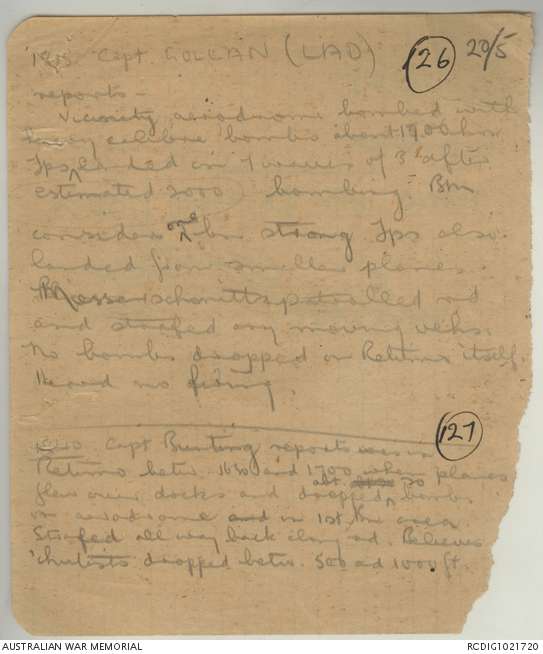 1815 Capt GOLLAN (LAD) 126 20/5
reports -
Vicinity aerodrome bombed with
heavy calibre bombs about 1700 hrs
Tps landed in 7 waves of 3's after
estimated 2000 bombing. Bn
considers one bn strong Tps also
landed from smaller planes.
Messerschmitts patrolled rd
and strafed any moving vehs.
No bombs dropped on Retimo itself.
Heard no firing
127
Capt Bunting reports was in
Retimo betw. 1630 and 1700 when planes
flew over docks and dropped abt 50 bombs
on aerodrome and in 1st Bn area
Strafed all way back along rd. Believes
'chutists dropped betw. 500 ad 1000 ft.
AUSTRALIAN WAR MEMORIAL
RCDIG1021720